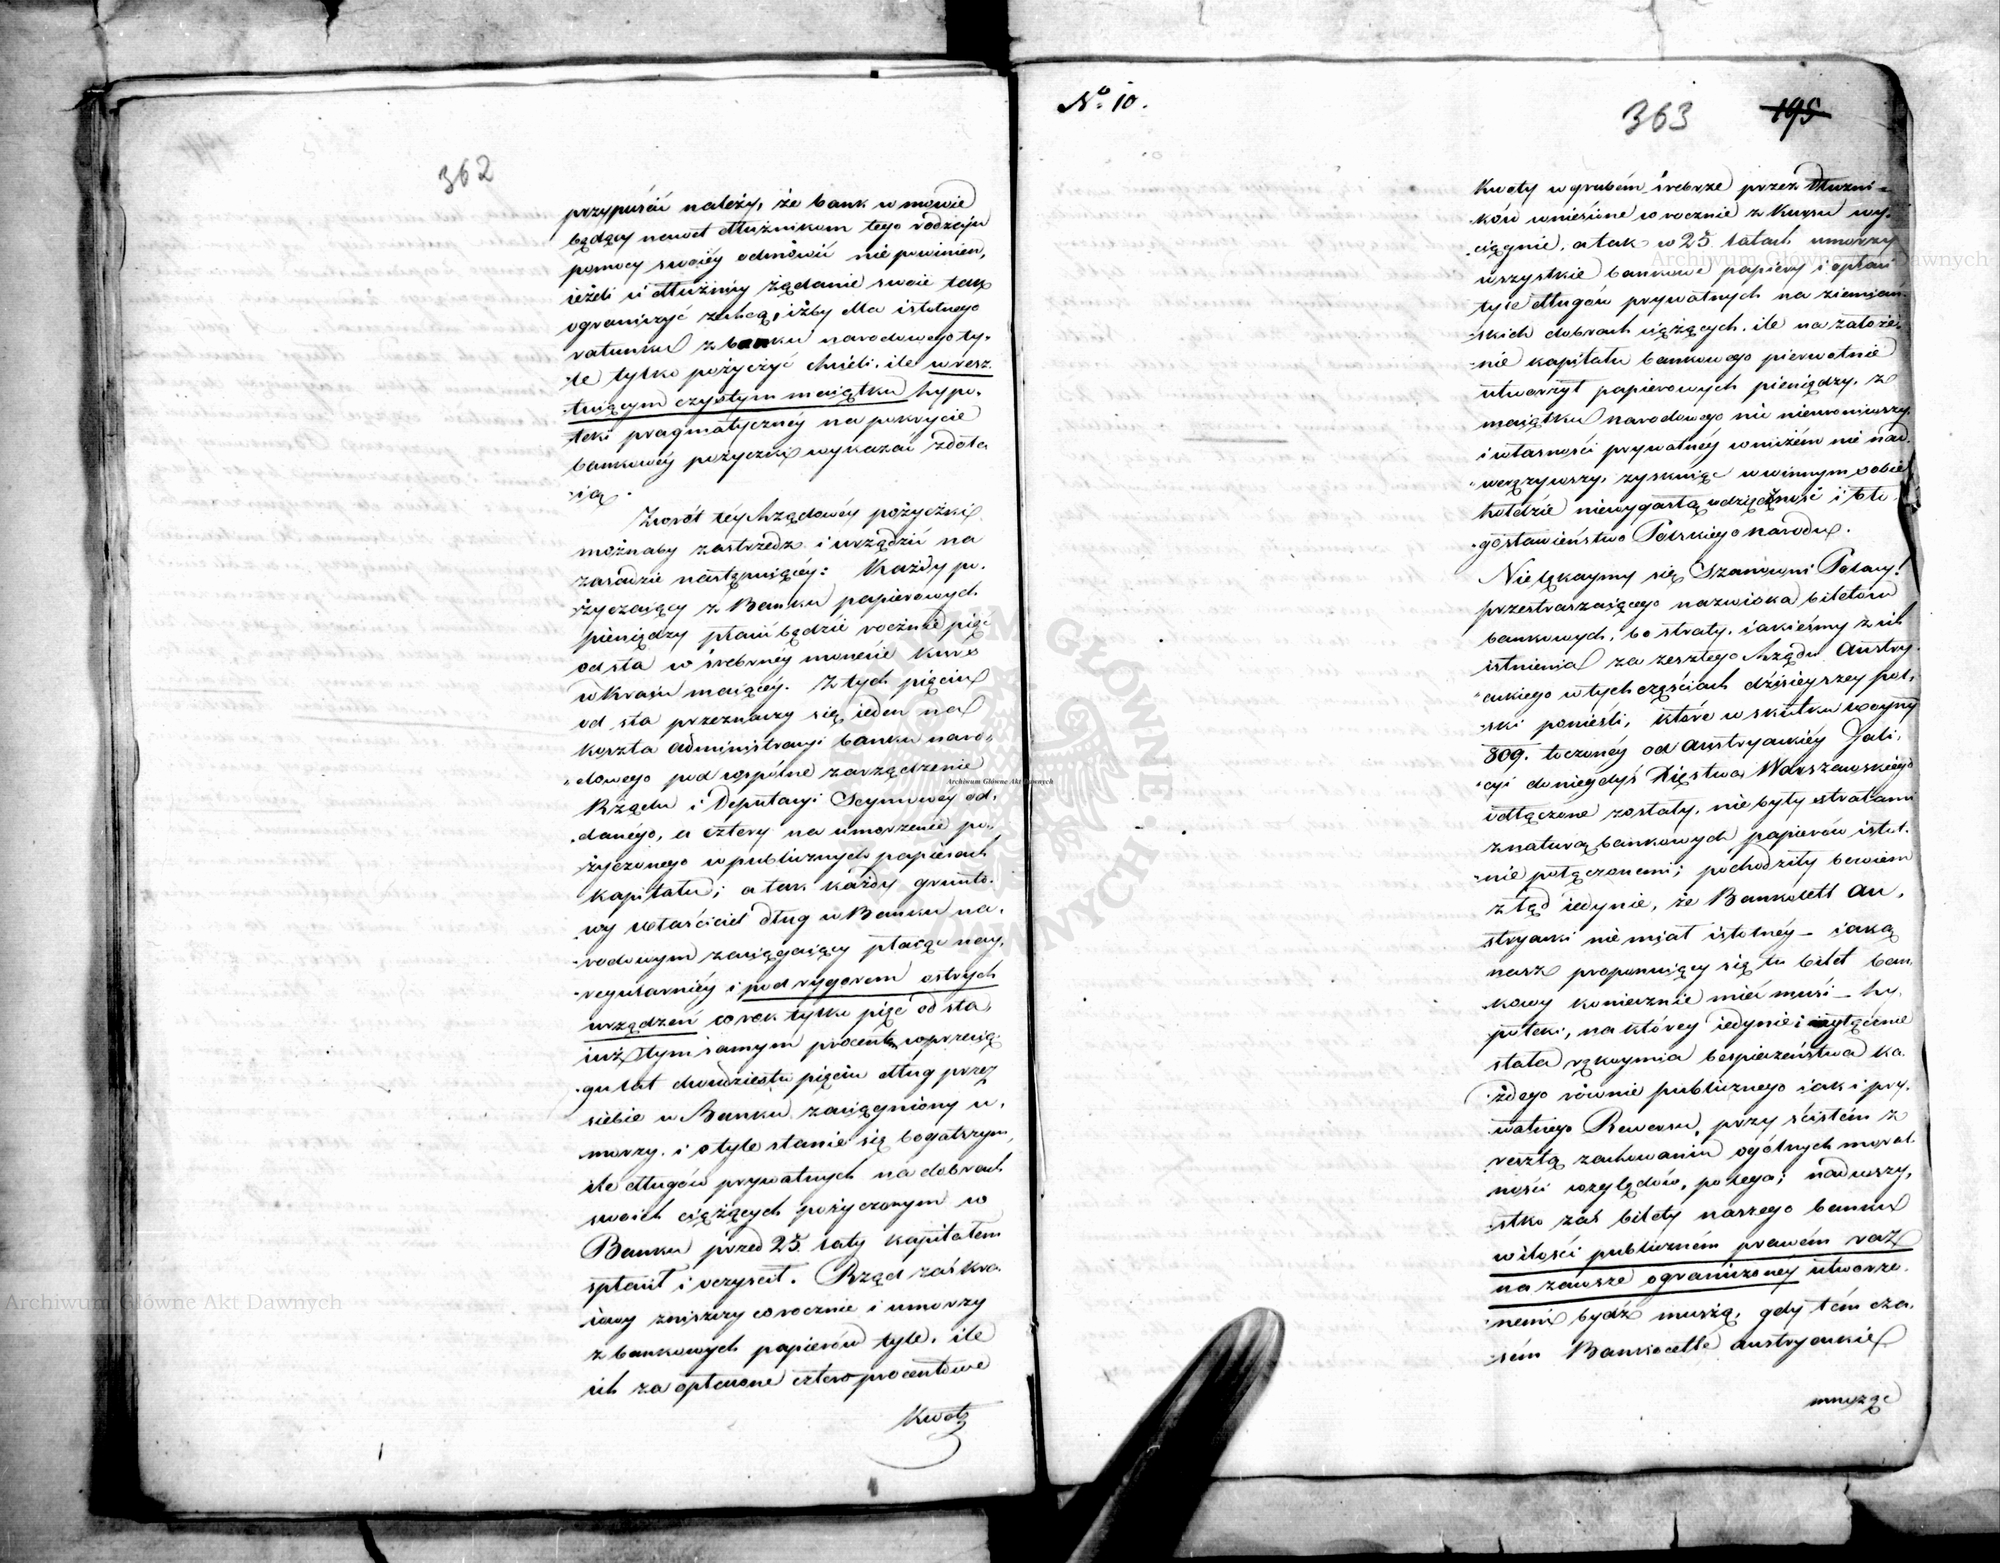 362
przypuścić należy, że bank w mowie
będący nawet dłużnikom tego rodzaju
pomocy swoiéy odmówić nie powinien,
ieżeli ci dłużnicy żądanie swoie tak
ograniczyć zechcą, iżby dla istotnego
ratunku z banku narodowego ty-
le tylko pożyczyć chcieli, ile w resz-
tuiącym czystym maiątku hypo-
teki pragmatycznéy na pokrycie
bankowéy pożyczki wykazać zdoła-
ią.
Zwrot téy Rządowéy pożyczki
możnaby zastrzedz i urządzić na
zasadzie następuiącéy: Każdy po-
życzaiący z Banku papierowych
pieniędzy płacić będzie rocznie pięć
od sta w srebrnéy monecie kurs
w kraiu maiącéy. Z tych pięciu
od sta przeznaczy się ieden na
koszta administracyi banku naro-
dowego pod wspólne zarządzenie
Rządu i Deputacyi Seymowéy od-
danégo, a cztery na umorzenie po-
życzonego w publicznych papierach
kapitału; a tak każdy grunto-
wy właściciel dług w Banku na-
rodowym zaciągaiący płacąc nay-
regularniéy i pod rygorem ostrych
urządzeń co rok tylko pięć od sta,
iuż tym samym procentem w przecią-
gu lat dwudziestu pięciu dług przez
siebie w Banku zaciągniony u-
morzy, i o tyle stanie się bogatszym,
ile długów prywatnych na dobrach
swoich ciążących pożyczonym w
Banku przed 25. laty kapitałem
spłacił i oczyścił. Rząd zaś kra-
iowy zniszczy corocznie i umorzy
z bankowych papierów tyle, ile
ich za opłacone cztero procentowe
Kwoty
No. 10.
363 195
Kwoty w grubém srebrze przez dłużni-
ków wniesione corocznie z kursu wy-
ciągnie, a tak w 25. latach umorzy
wszystkie bankowe papiery i opłaci
tyle długów prywatnych na ziemiań-
skich dobrach ciążących, ile na założe-
nie kapitału bankowego pierwotnie
utworzył papierowych pieniędzy, z
maiątku narodowego nic nieuroniwszy,
i własności prywatnéy w niczém nie nad-
werężywszy, zyskuiąc w winnym sobie
hołdzie niewygasłą wdzięczność i bło-
gosławieństwo Polskiego narodu.
Nie lękaymy się Szanowni Polacy!
przestraszaiącego nazwiska biletów
bankowych, bo straty, iakieśmy z ich
istnienia za zeszłego Rządu Austry-
ackiego w tych częściach dzisieyszey Pol-
ski ponieśli, które w skutku woyny
809. toczonéy od Austryackiéy Gali-
cyi do niegdyś Xięstwa Warszawskiego
odłączone zostały, nie były stratami
z naturą bankowych papierów istot-
nie połączonemi; pochodziły bowiem
z tąd iedynie, że Bankocetl Au-
stryacki nie miał istotnéy – iaką
nasz proponuiący się tu bilet ban-
kowy koniecznie mieć musi – hy-
poteki, na któréy iedynie i wyłącznie
stała rękoymia bespieczeństwa ka-
żdego równie publicznego iak i pry-
watnego Rewersu, przy ścisłém z
resztą zachowaniu ogólnych moral-
ności względów, polega; nadewszy-
stko zaś bilety naszego banku
w ilości publiczném prawém raz
na zawsze ograniczonéy utworzo-
nemi bydź muszą, gdy tém cza-
sém Bankocetle austryackie
mnożąc
Archiwum Główne Akt Dawnych
Archiwum Główne Akt Dawnych
Archiwum Główne Akt Dawnych